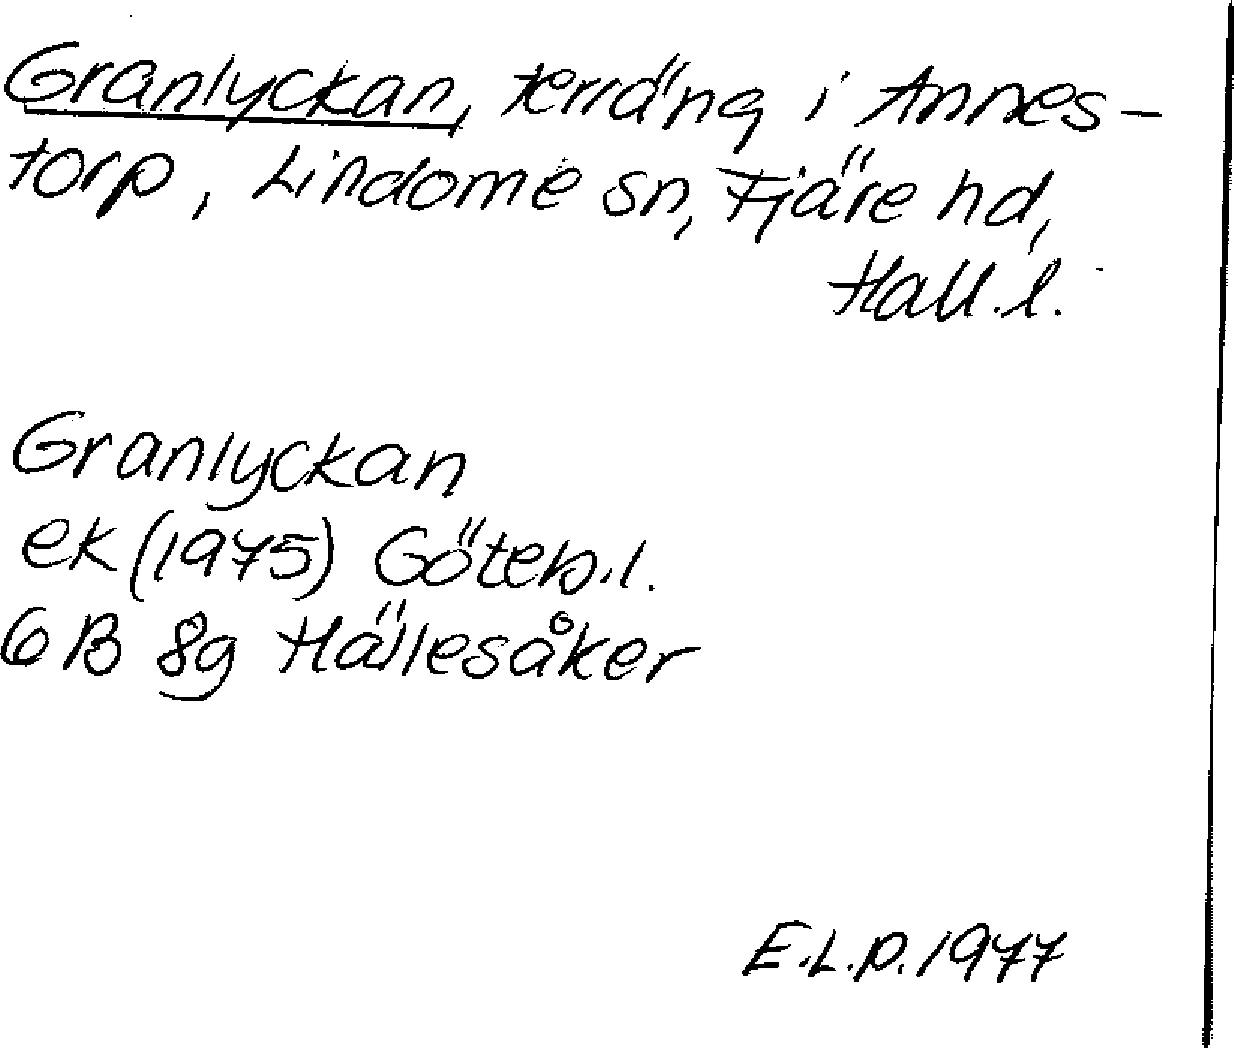 Granlyckan, terräng i Annes-
torp, Lindome sn, Fjäre hd,
Hall.l.
Granlyckan
ek (1975) Göteb.l.
6 B 8g Hällesåker
E.L.P. 1977